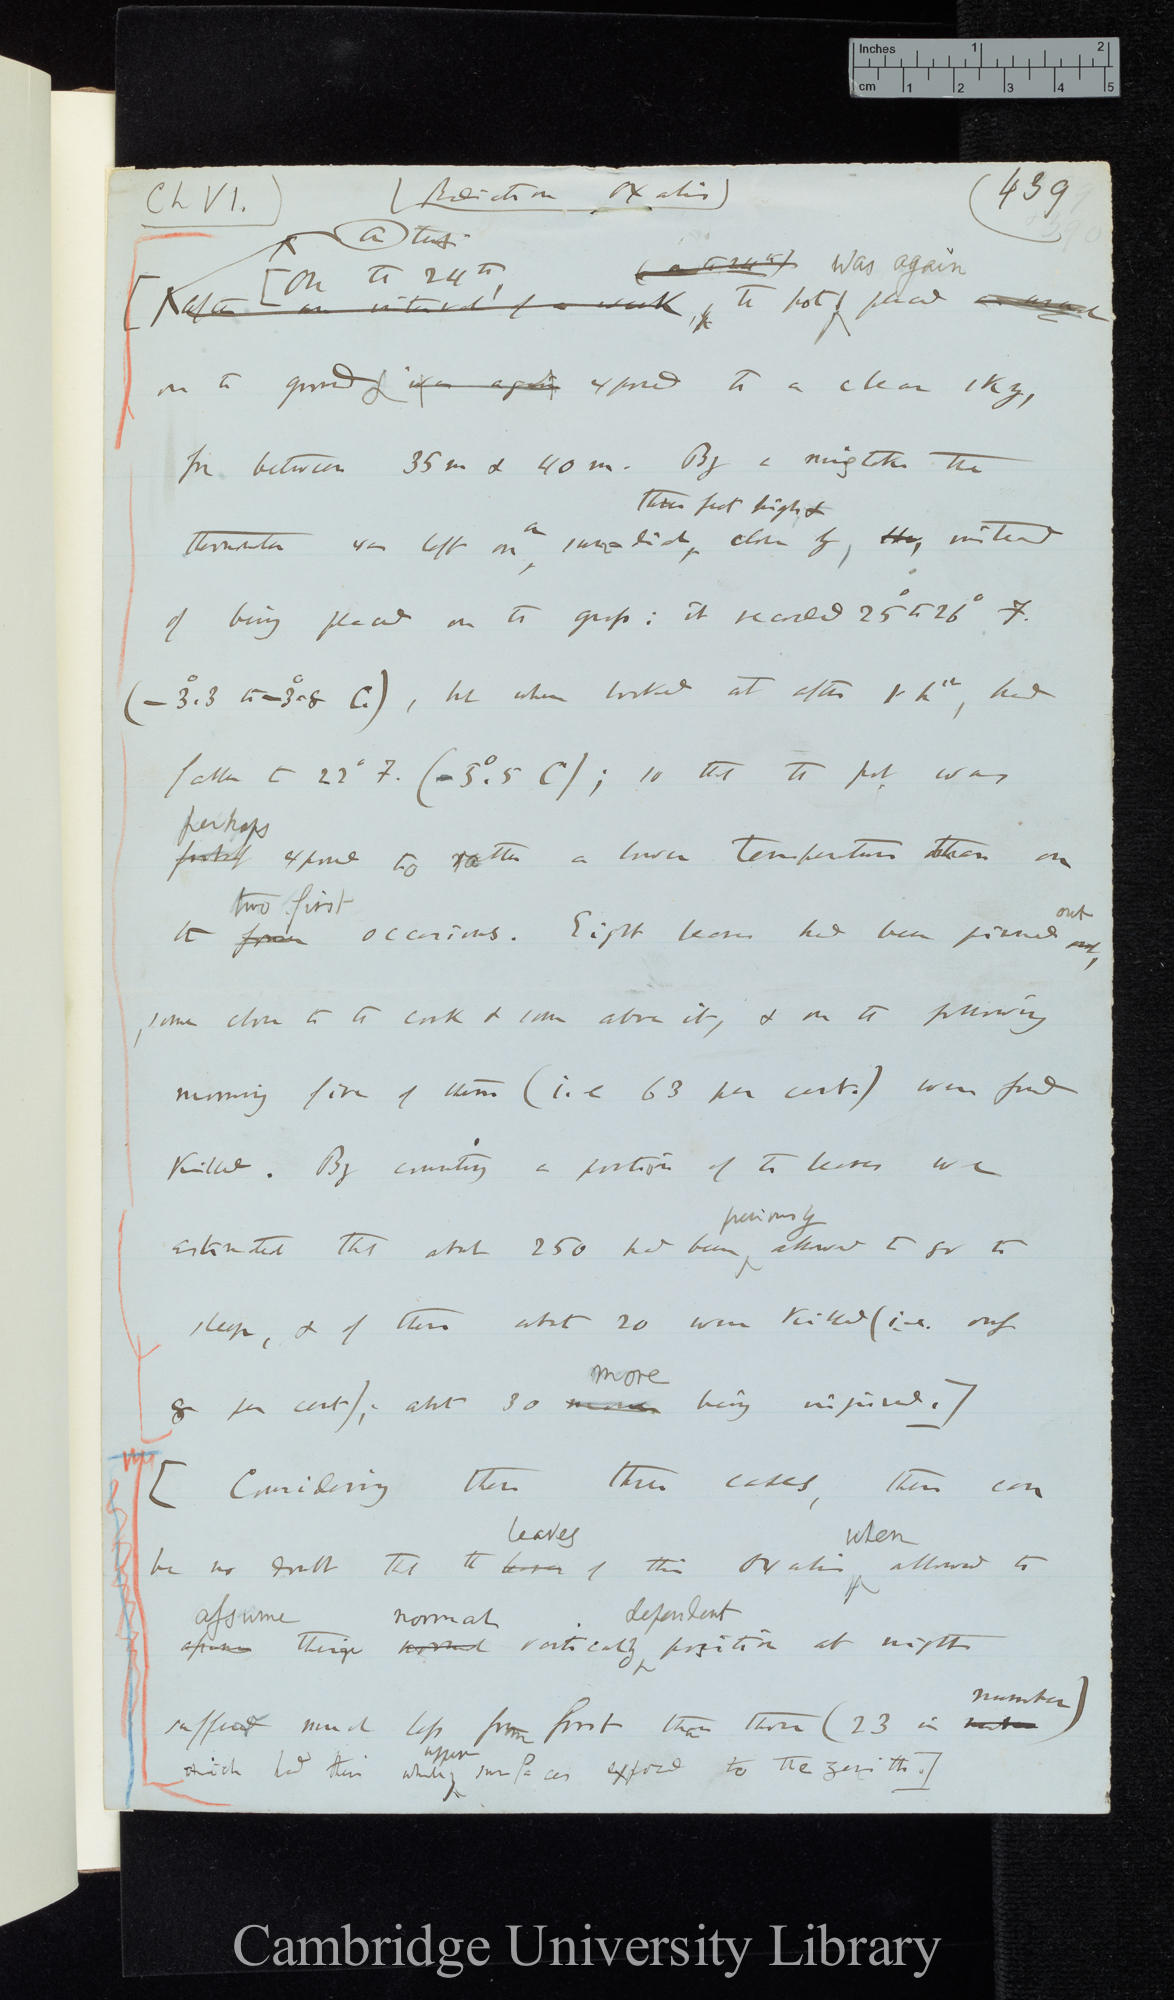 Inches 1 2
cm 1 2 3 4 5
Ch VI. (Radiation Oxalis) (439
[On the 24th, (on the 24th) was again
after an interval of a week, the pot placed
on the ground & was again exposed to a clear sky,
for between 35m & 40m. By a mistake the
three feet high &
thermometer was left on an sun-dial, close by, instead
of being placed on the grass: it recorded 25° to 26° F.
(-3°.3 to -3°.8 C.), but when looked at after 1 h, had
fallen to 22° F. (-5°.5 C); so that the pot was
perhaps
exposed to rather a lower temperature than on
two first
the former occasions. Eight leaves had been pinned out,
some close to the cork & some above it, & on the following
morning five of them (i.e 63 per cent.) were found
killed. By counting a portion of the leaves we
previously
estimated that about 250 had been allowed to go to
sleep, & of these about 20 were killed (i.e. only
more
8 per cent); about 30 being injured.]
[Considering these three cases, there can
leaves when
be no doubt that the leaves of this Oxalis, allowed to
assume normal dependent
assume their normal vertically position at night
number)
suffered much less from frost than those (23 in number
upper
which had their surfaces exposed to the zenith.]
Cambridge University Library